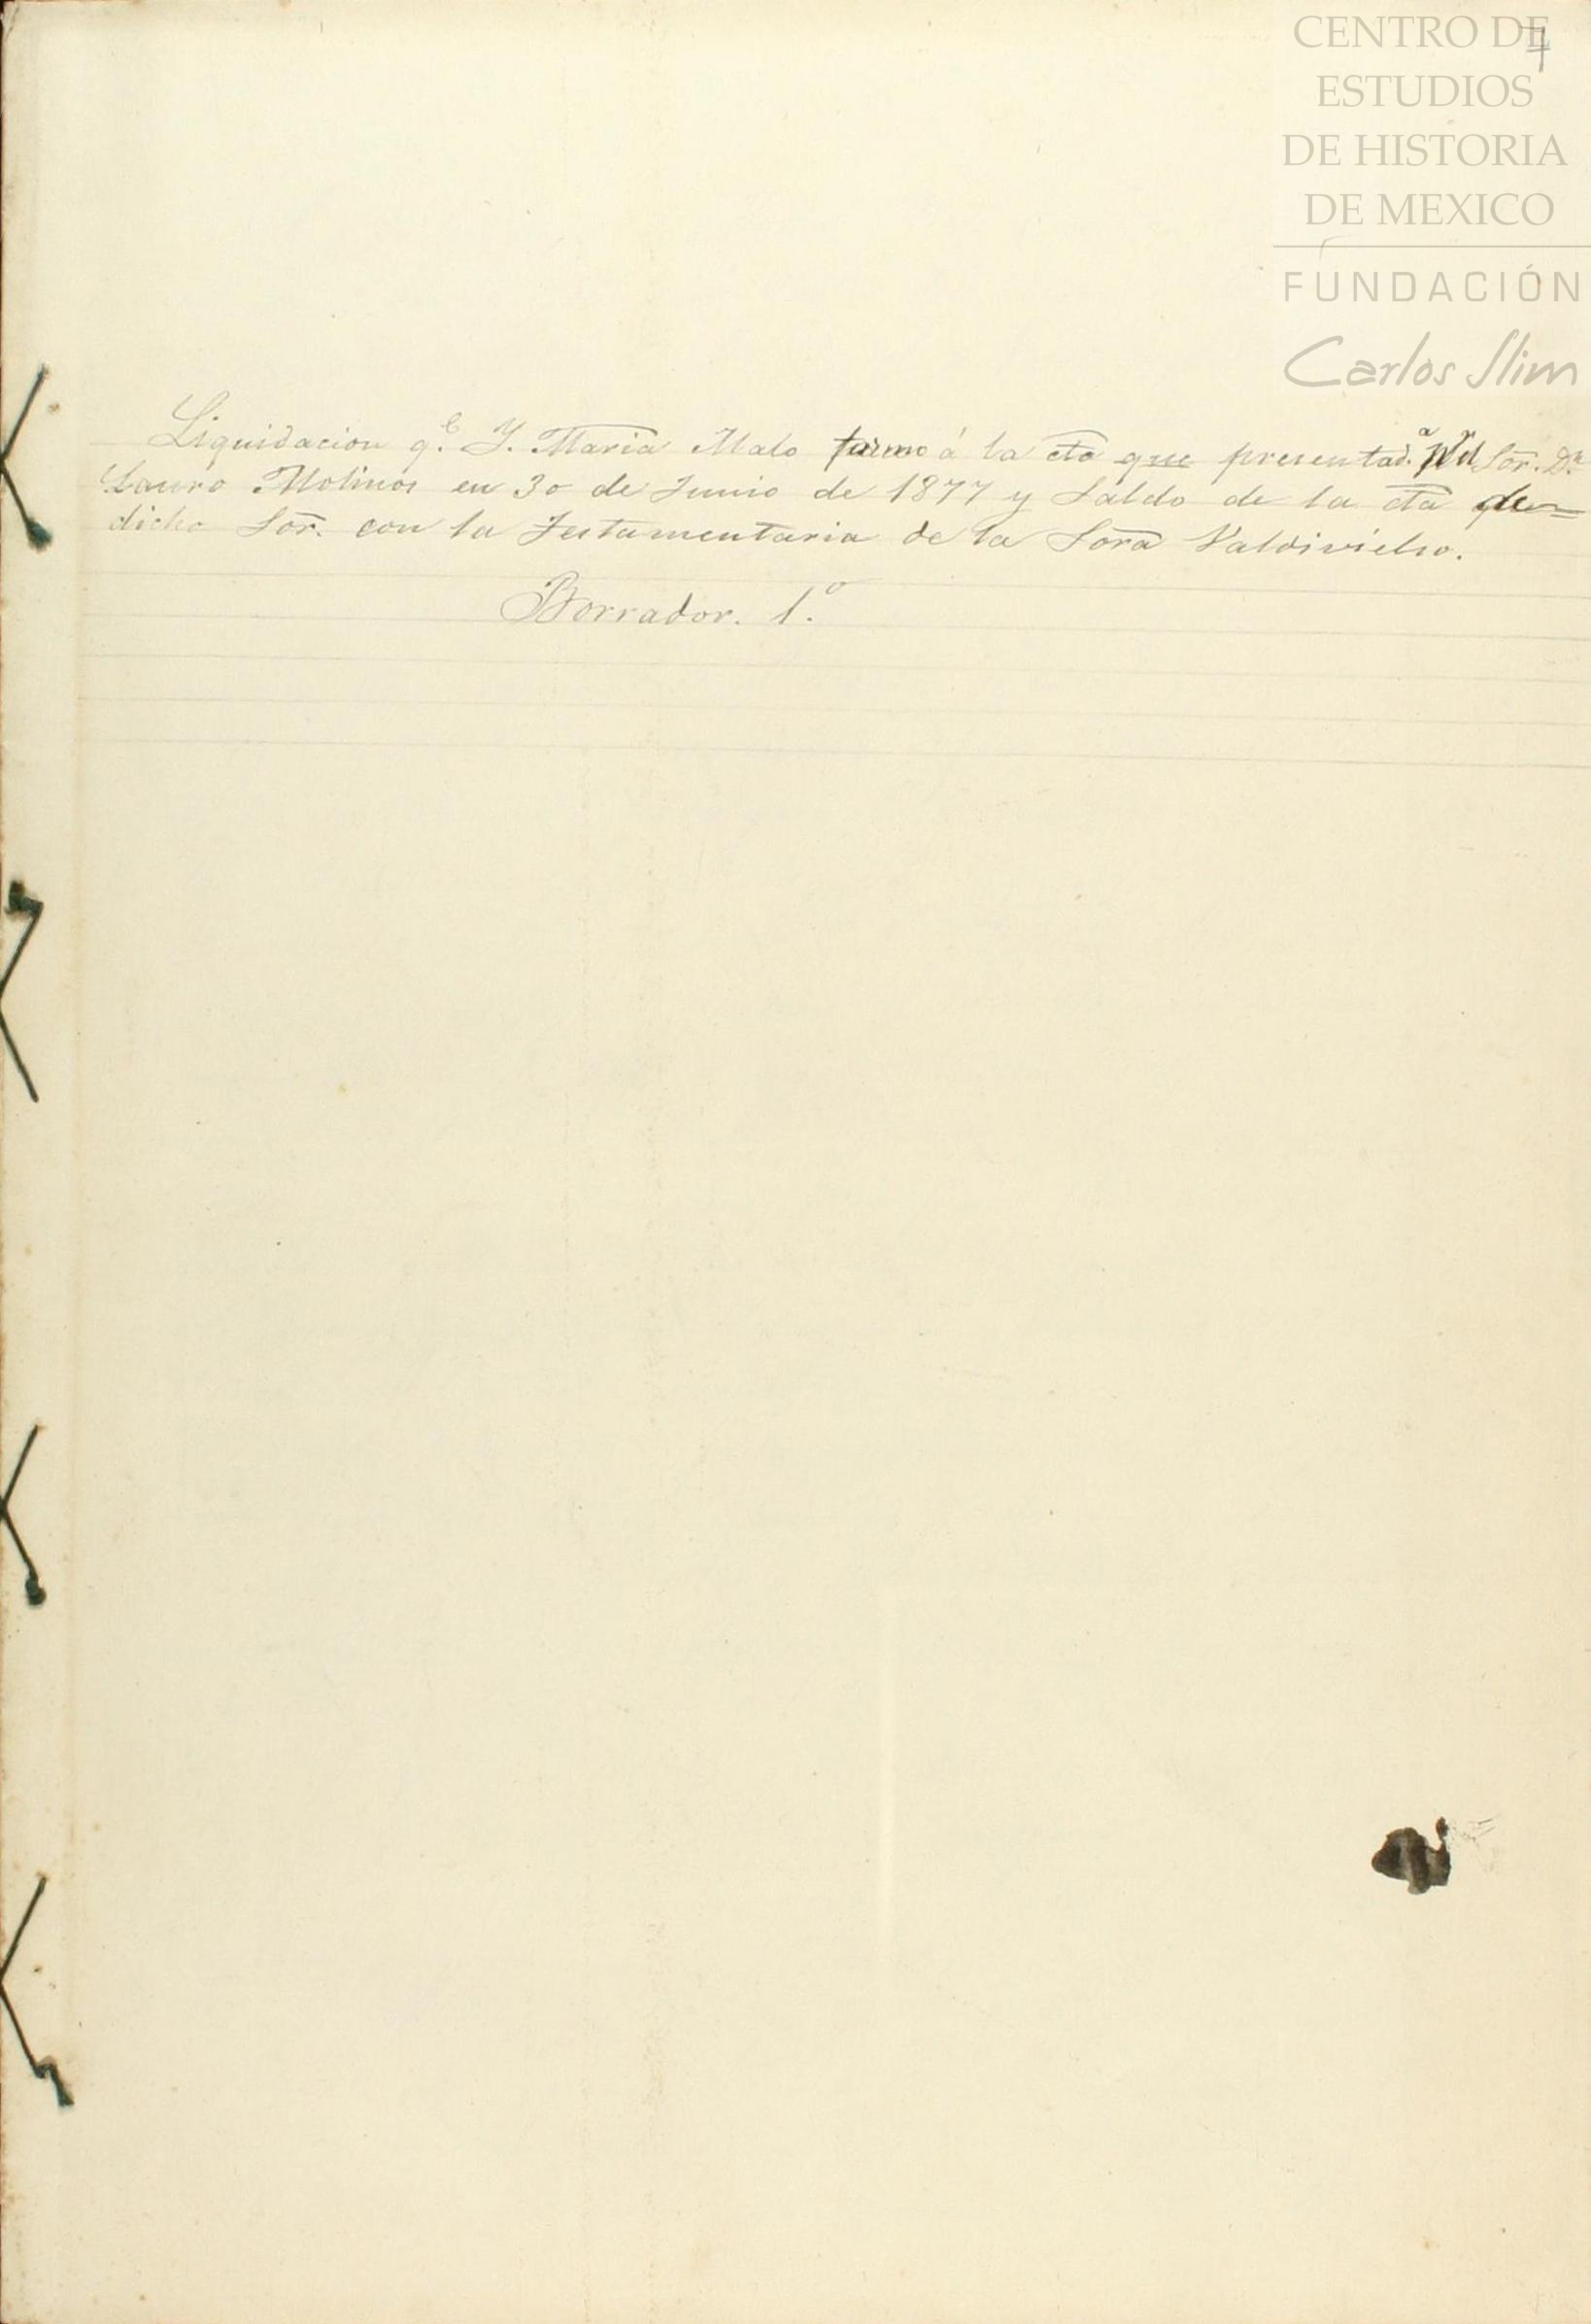 CENTRO DE
ESTUDIOS
DE HISTORIA
DE MEXICO
FUNDACIÓN
Carlos Slim
7
Liquidacion q.e J. Maria Malo formo á la cta que presentad.a p.r el Sor. Dn
Lauro Molinos en 30 de Junio de 1877 y Saldo de la cta de
dicho Sor. con la Testamentaria de la Sora Valdivielso.
Borrador. 1.o